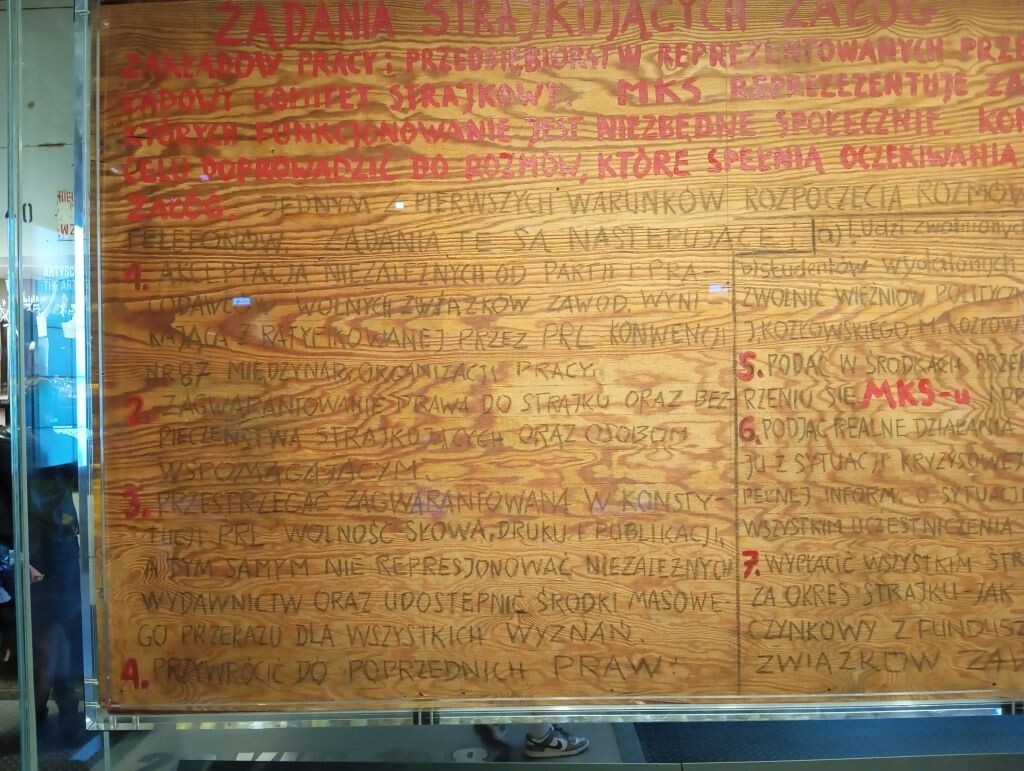 ŻĄDANIA STRAJKUJĄCYCH ZAŁÓG
ZAKŁADÓW PRACY i PRZEDSIĘBIORSTW REPREZENTOWANYCH PRZE
ŁADOWY KOMITET STRAJKOWY. MKS REPREZEZENTUJE ZA
KTÓRYCH FUNKCJONOWANIE JEST NIEZBĘDNE SPOŁECZNIE KOM
CELU DOPROWADZIĆ DO ROZMÓW, KTÓRE SPEŁNIĄ OCZEKIWANIA
ZAŁÓG. JEDNYM Z PIERWSZYCH WARUNKÓW ROZPOCZĘCIA ROZMÓW
TELEFONÓW. ŻĄDANIA TE SĄ NASTĘPUJĄCE:
1. AKCEPTACJA NIEZALEŻNYCH OD PARTII I PRA-
CODAWCÓW WOLNYCH ZWIĄZKÓW ZAWOD. WYNI
KAJĄCA Z RATYFIKOWANEJ PRZEZ PRL KONWENCJI
NR 87 MIĘDZYNAR. ORGANIZACJI PRACY.
2. ZAGWARANTOWANIE PRAWA DO STRAJKU ORAZ BEZ-
PIECZEŃSTWA STRAJKUJĄCYCH ORAZ OSOBOM
WSPOMAGAJĄCYM.
3. PRZESTRZEGAĆ ZAGWARANTOWANĄ W KONSTY-
TUCJI PRL WOLNOŚĆ SŁOWA, DRUKU I PUBLIKACJI,
A TYM SAMYM NIE REPRESJONOWAĆ NIEZALEŻNYCH
WYDAWNICTW ORAZ UDOSTĘPNIĆ ŚRODKI MASOWE-
GO PRZEKAZU DLA WSZYSTKICH WYZNAŃ.
4. PRZYWRÓCIĆ DO POPRZEDNICH PRAW:
a) Ludzi zwolnionych
b) studentów wydalanych
ZWOLNIĆ WIĘŹNIÓW POLITYCZN
J. KOZŁOWSKIEGO M. KOZŁOW
5. PODAĆ W ŚRODKACH PRZEK
RZENIU SIĘ MKS-u OP
6. PODJĄĆ REALNE DZIAŁANIA
JU Z SYTUACJI KRYZYSOWEJ
PEŁNEJ INFORM. O SYTUACJI
WSZYSTKIM UCZESTNICZENIA
7. WYPŁACIĆ WSZYSTKIM STR
ZA OKRES STRAJKU-JAK
CZYNKOWY Z FUNDUSZ
ZWIĄZKÓW ZAW